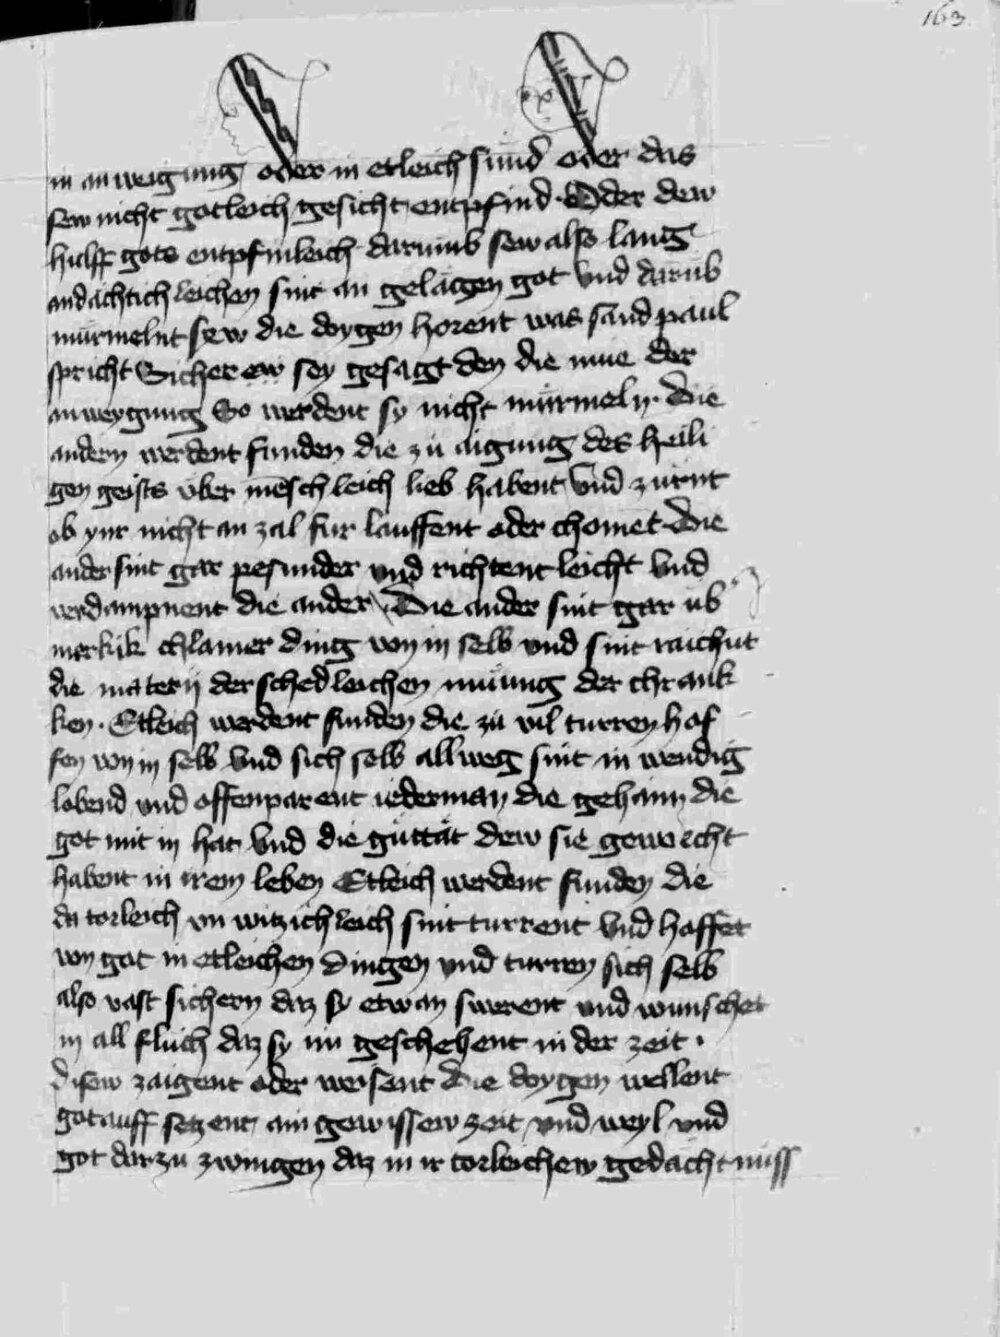 163
in anweigung oder in etleich sund oder das
sew nicht gotleich gesicht entpfind. Oder dew
hulff gots entpfinleich darumb sew also lang
andachtichleichen sint an gelägen got vnd darub
murmelnt sew die doygen horent was sand paul
spricht Sicher ew sey gesagt den die mue der
anweygung So werdent sy nicht murmeln. Die
andern werdent funden die zu aigung des heili
gen geists über meschleich lieb habent vnd zurnt
ob ynr nicht an zal fur lauffent oder chomet. Die
ander sint gar pesunder vnd richtent leicht vnd
verdampnent die ander. Die ander sint gar ub
merkik chlainer ding von in selb vnd sint raichnt
die materij der schedleichen muung der chrank
ken. Etleich werdent funden die zu vil turren hof
fen von in selb vnd sich selb allweg sint in wendig
lobend vnd offenparent iederman die gehaim die
got mit in hat vnd die guttät dew sie geworcht
habent in irem leben Etleich werdent funden die
da torleich vn witzichleich sint turrent vnd hoffet
von got in etleichen dingen vnd turren sich selb
also vast sichern daz sy etwan swerent vnd wunschet
in all fluch daz sy im geschehent in der zeit.
disew zaigent oder weisent Die doygen wellent
got auff setzent ain gewissew zeit vnd weyl vnd
got darzu zwingen daz in ir torleichew gedachtnuss